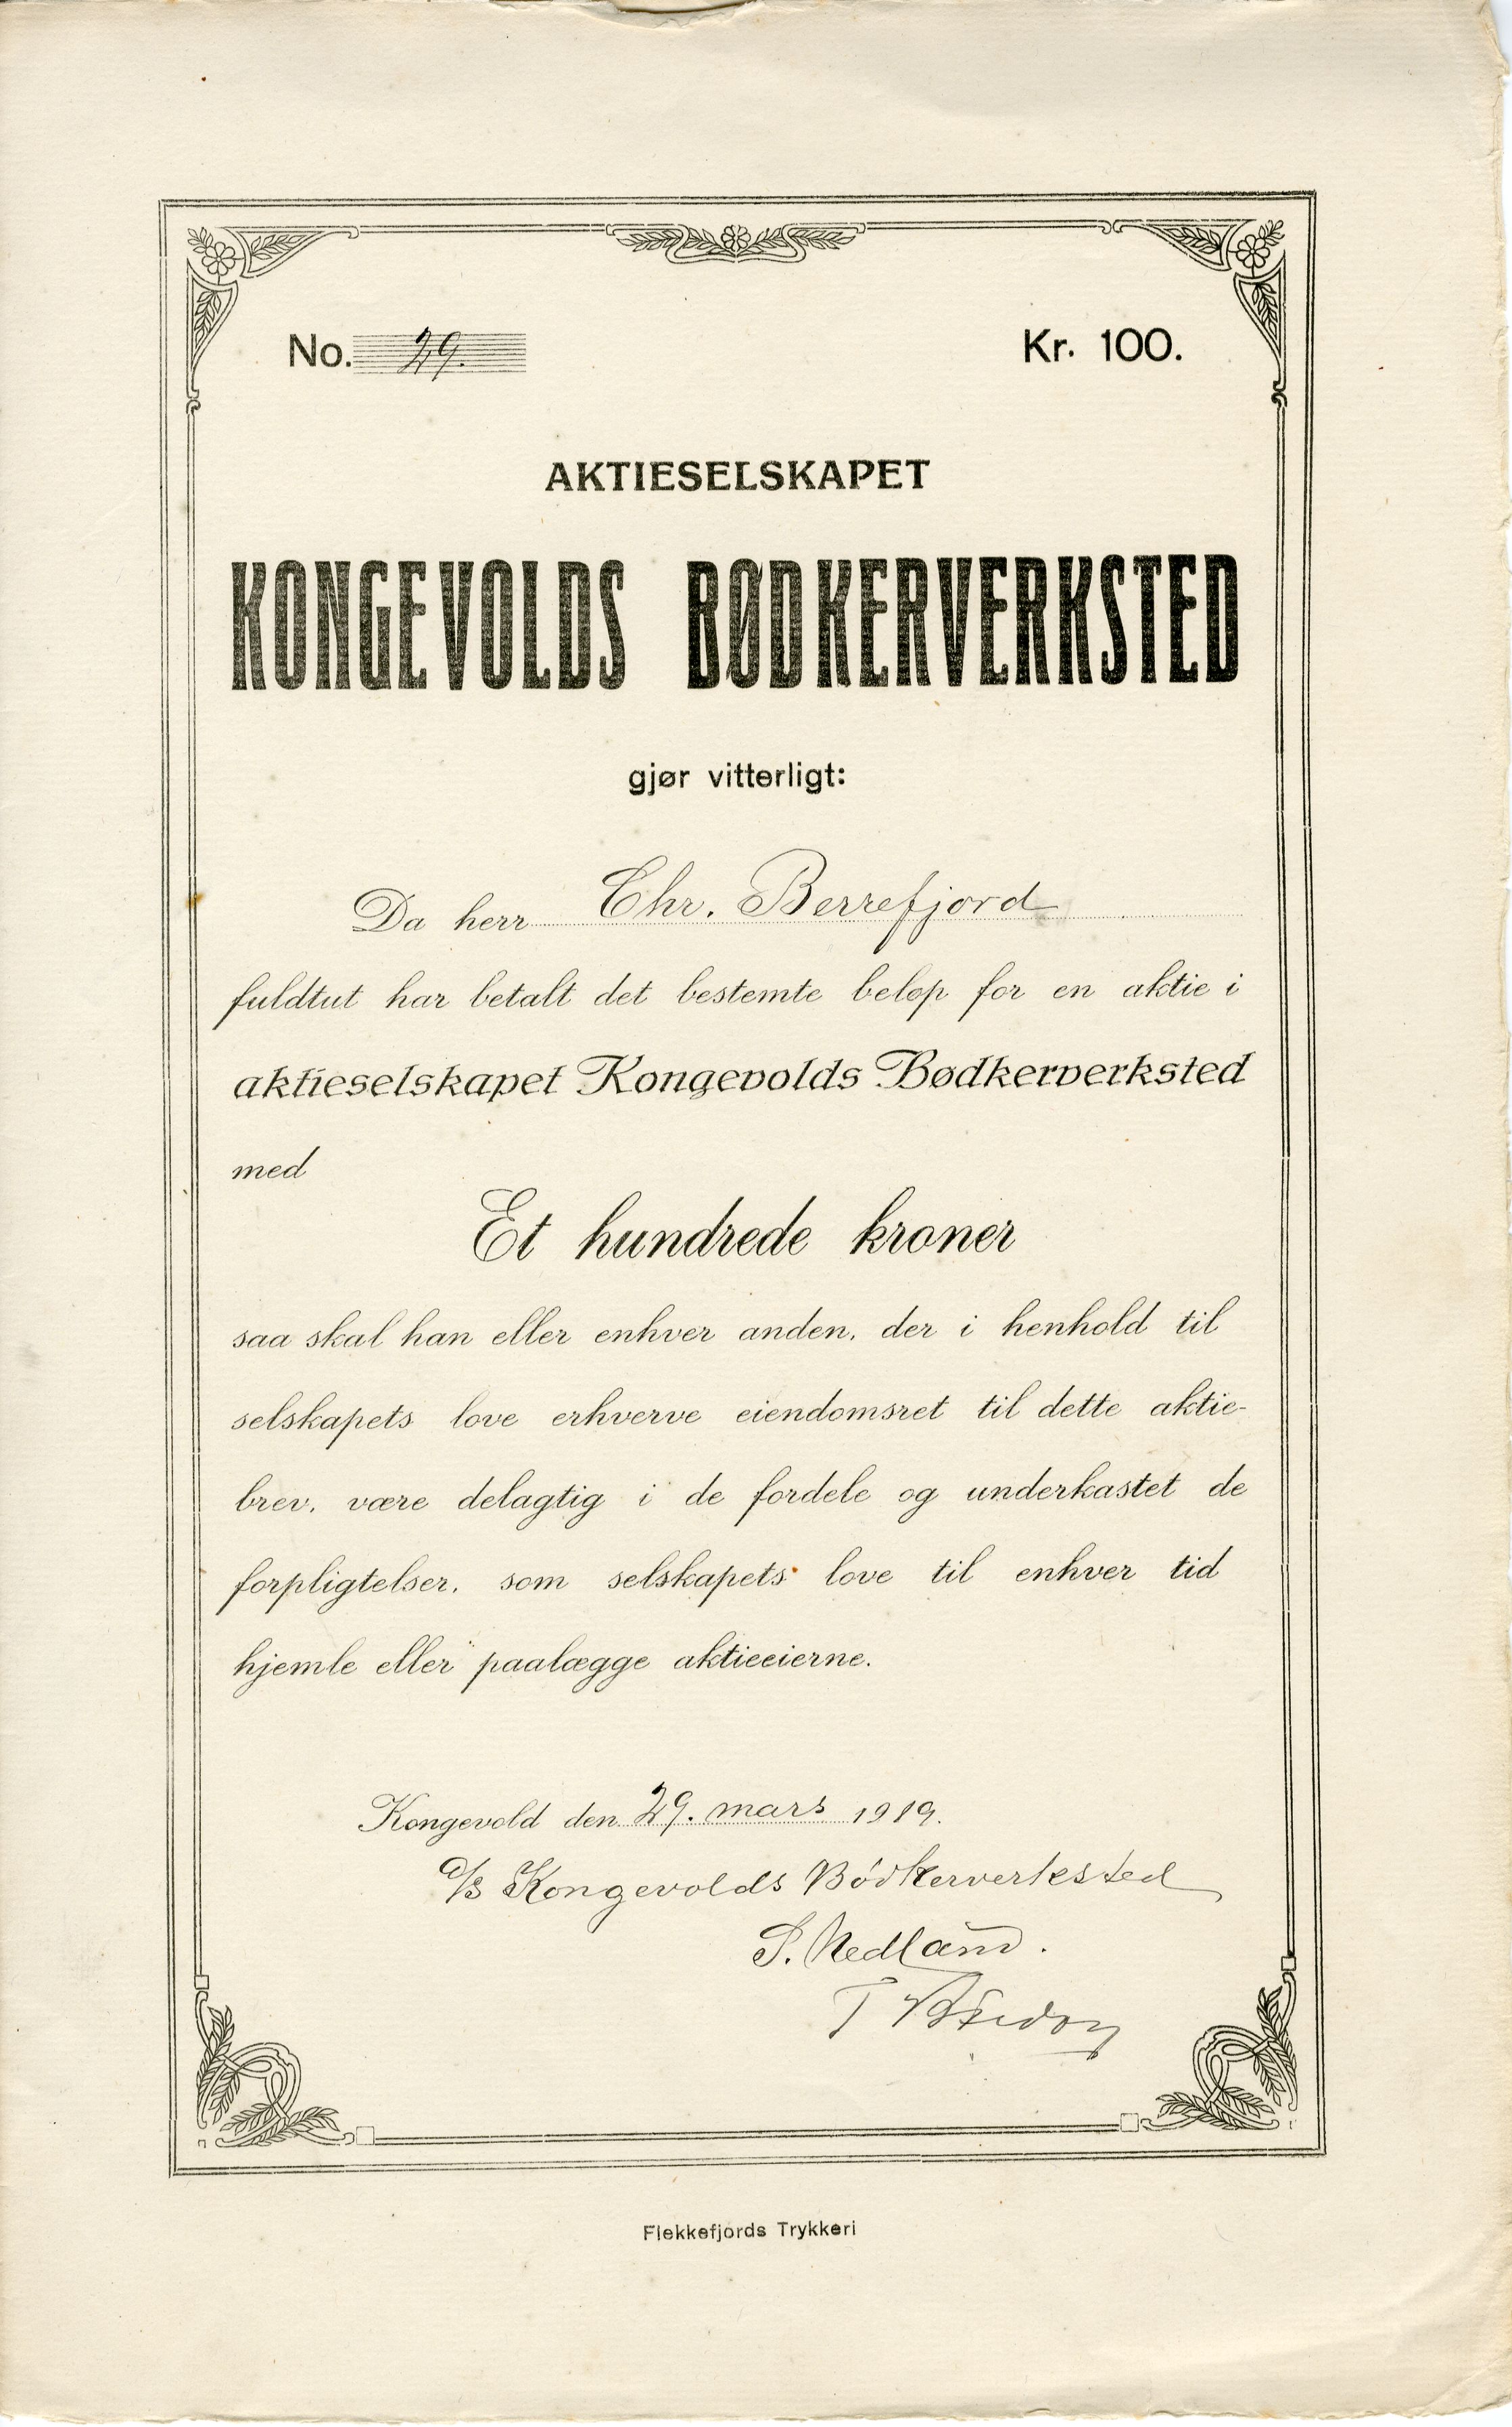 No. 29. Kr. 100.
AKTIESELSKAPET
KONGEVOLDS BØDKERVERKSTED
gjør vitterligt:
Da herr Chr. Berrefjord
fuldtut har betalt det bestemte beløp for en aktie i
aktieselskapet Kongevolds Bødkerverksted
med
Et hundrede kroner
saa skal han eller enhver anden, der i henhold til
selskapets love erhverve eiendomsret til dette aktie-
brev, være delagtig i de fordele og underkastet de
forpligtelser, som selskapets love til enhver tid
hjemle eller paalægge aktieeierne.
Kongevold den 29. mars 1919.
a/s Kongevolds Bödkerverksted
S. Nedland.
T
Flekkefjords Trykkeri